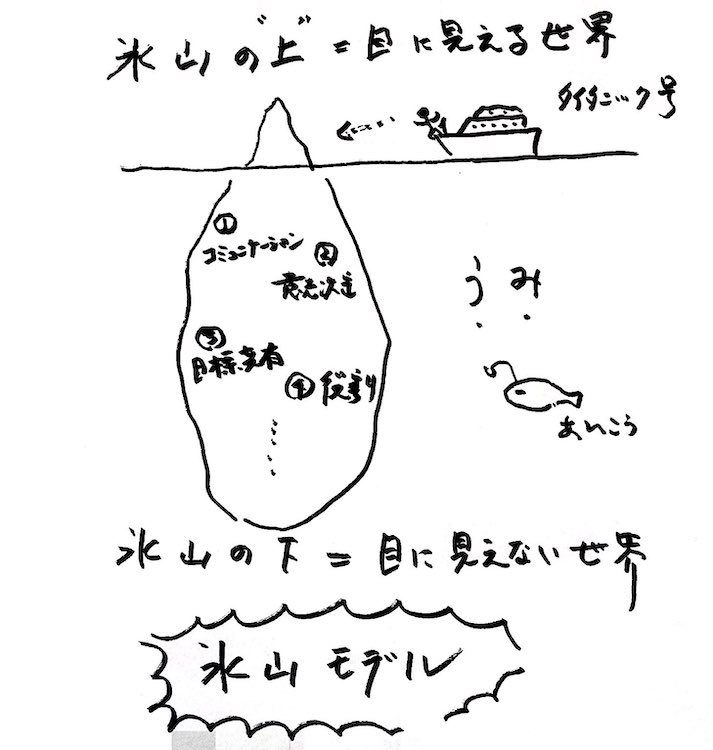 氷山の"上"=目に見える世界
タイタニック号
①
コミュニケーション
②
意志決定
③
目標共有
④役割り
うみ
あんこう
氷山の下=目に見えない世界
氷山モデル